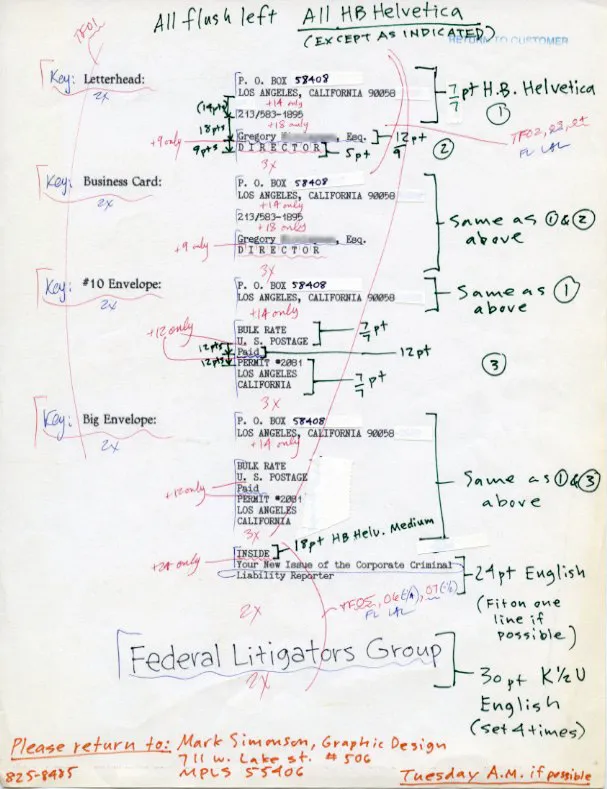 All flush left All HB Helvetica
(EXCEPT AS INDICATED)
RETURN TO CUSTOMER
TF01
Key: Letterhead:
2x
P. O. BOX 58408
LOS ANGELES, CALIFORNIA 90058
(14pts) +14 only
213/583-1895
18pts +18 only
Gregory , Esq.
+9 only 9pts
DIRECTOR
3x
7/7 pt H.B. Helvetica
①
12pt/9
5pt
②
TF02, 03, 04
FL LAL
Key: Business Card:
2x
P. O. BOX 58408
LOS ANGELES, CALIFORNIA 90058
+14 only
213/583-1895
+18 only
Gregory , Esq.
+9 only
DIRECTOR
3x
Same as ① & ②
above
Key: #10 Envelope:
2x
P. O. BOX 58408
LOS ANGELES, CALIFORNIA 90058
+14 only
Same as ①
above
+12 only
BULK RATE
U. S. POSTAGE
7/7 pt
12pts
Paid
12pt
12pts
PERMIT #2081
LOS ANGELES
CALIFORNIA
7/7 pt
③
3x
Key: Big Envelope:
2x
P. O. BOX 58408
LOS ANGELES, CALIFORNIA 90058
+14 only
BULK RATE
U. S. POSTAGE
+12 only
Paid
PERMIT #2081
LOS ANGELES
CALIFORNIA
3x
Same as ① & ③
above
INSIDE
18pt HB Helv. Medium
+24 only
Your New Issue of the Corporate Criminal
Liability Reporter
24pt English
(Fit on one
line if
possible)
2x
TF05, 06 07
FL LAL
Federal Litigators Group
2x
30pt K½U
English
(set 4 times)
Please return to: Mark Simonson, Graphic Design
711 W. Lake St. #506
825-8485
MPLS 55406
Tuesday A.M. if possible